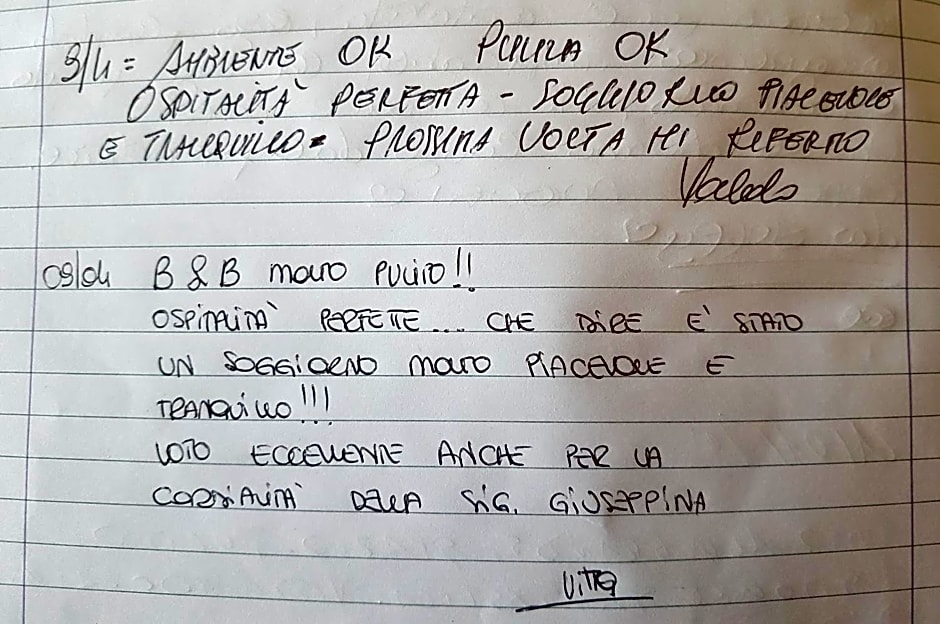 9/4 = AMBIENTE OK PULIZIA OK
OSPITALITÀ PERFETTA - SOGGIORNO PIACEVOLE
E TRANQUILLO = PROSSIMA VOLTA MI RIFERMO
09/04 B & B MOLTO PULITO!!
OSPITALITÀ PERFETTE.... CHE DIRE E' STATO
UN SOGGIORNO MOLTO PIACEVOLE E
TRANQUILLO!!!
VOTO ECCELLENTE ANCHE PER LA
CORDIALITÀ DELLA SIG. GIUSEPPINA